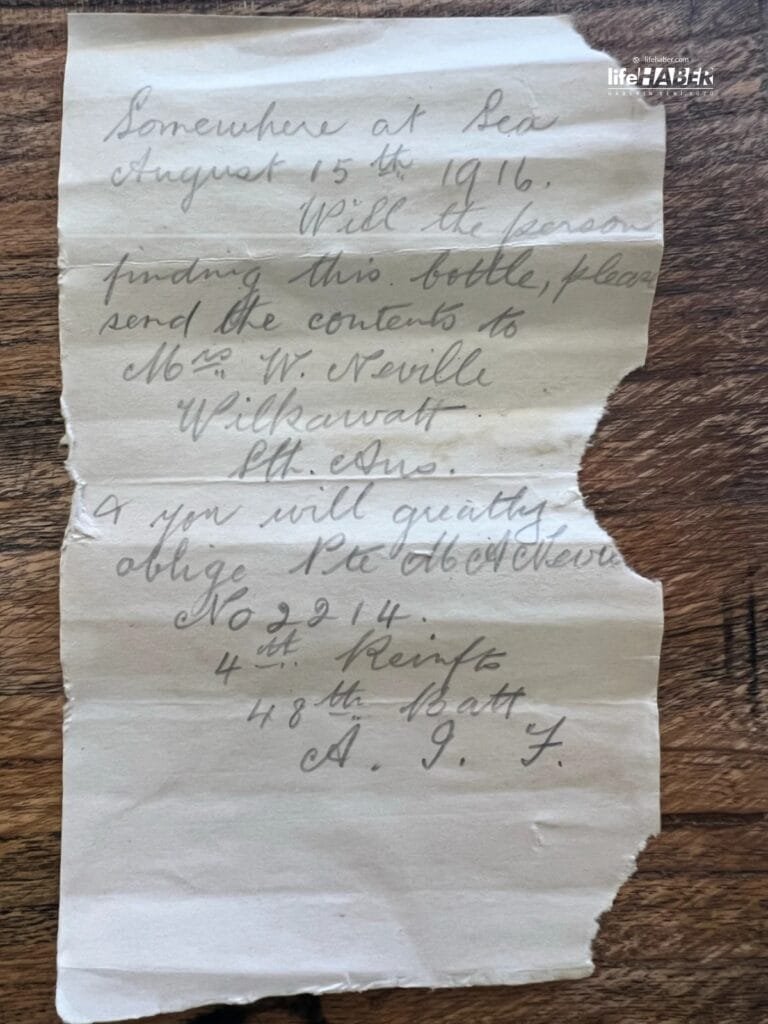 lifehaber.com
lifeHABER
HABERİN YENİ YÜZÜ
Somewhere at Sea
August 15th 1916.
Will the person
finding this bottle, please
send the contents to
Mrs W. Neville
Wilkawatt
Sth. Aus.
& you will greatly
oblige Pte M A Nevi
No 2214.
4th Reinfts
48th Batt
A. I. F.